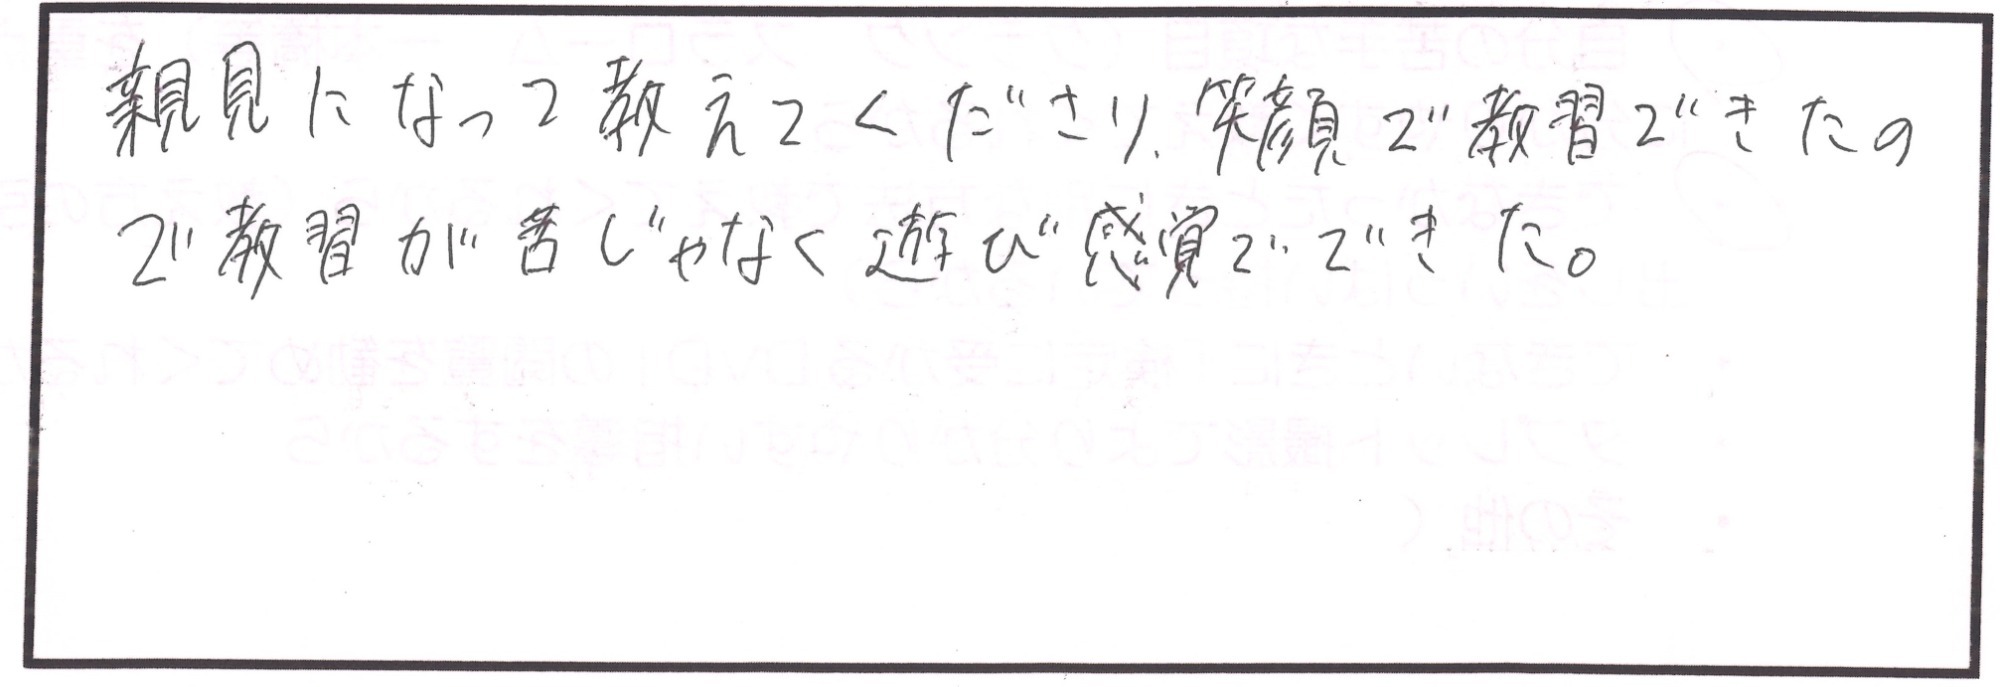 親見になって教えてくださり、笑顔で教習できたの
で教習が苦じゃなく遊び感覚でできた。